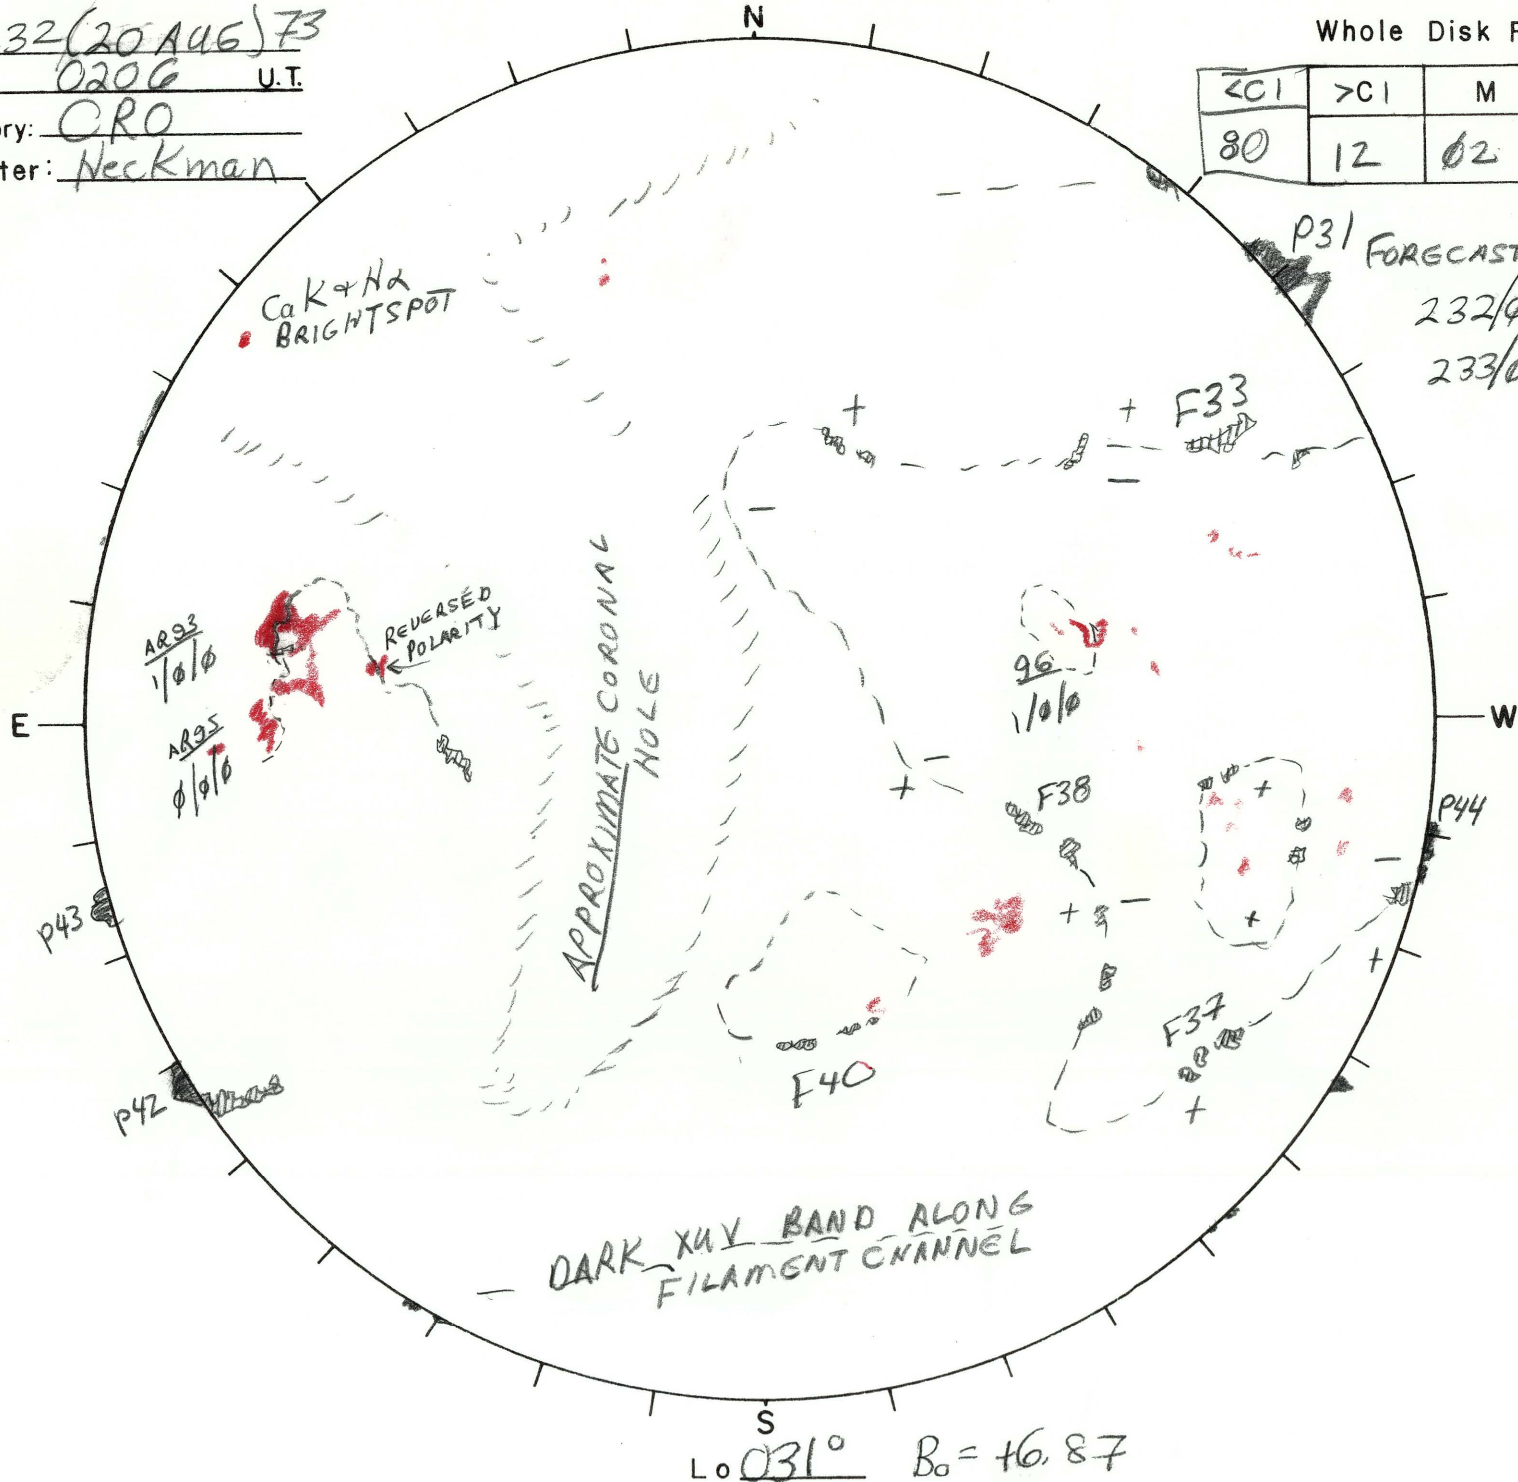 32(20 AUG)73
0206 U.T.
ry: CRO
ter: Heckman
N
Whole Disk F
<C1 >C1 M
80 12 Ø2
P31
FORECAST
232/Ø
233/Ø
CaK+Hα
BRIGHTSPOT
+
+
F33
−
−
AR93
1/Ø/Ø
REVERSED
POLARITY
APPROXIMATE CORONAL
HOLE
96
1/Ø/Ø
E
W
AR95
Ø/Ø/Ø
−
+
F38
+
P44
−
P43
+ −
+
+
F37
F40
+
P42
DARK XUV BAND ALONG
FILAMENT CHANNEL
S
Lo 031° Bo = +6.87